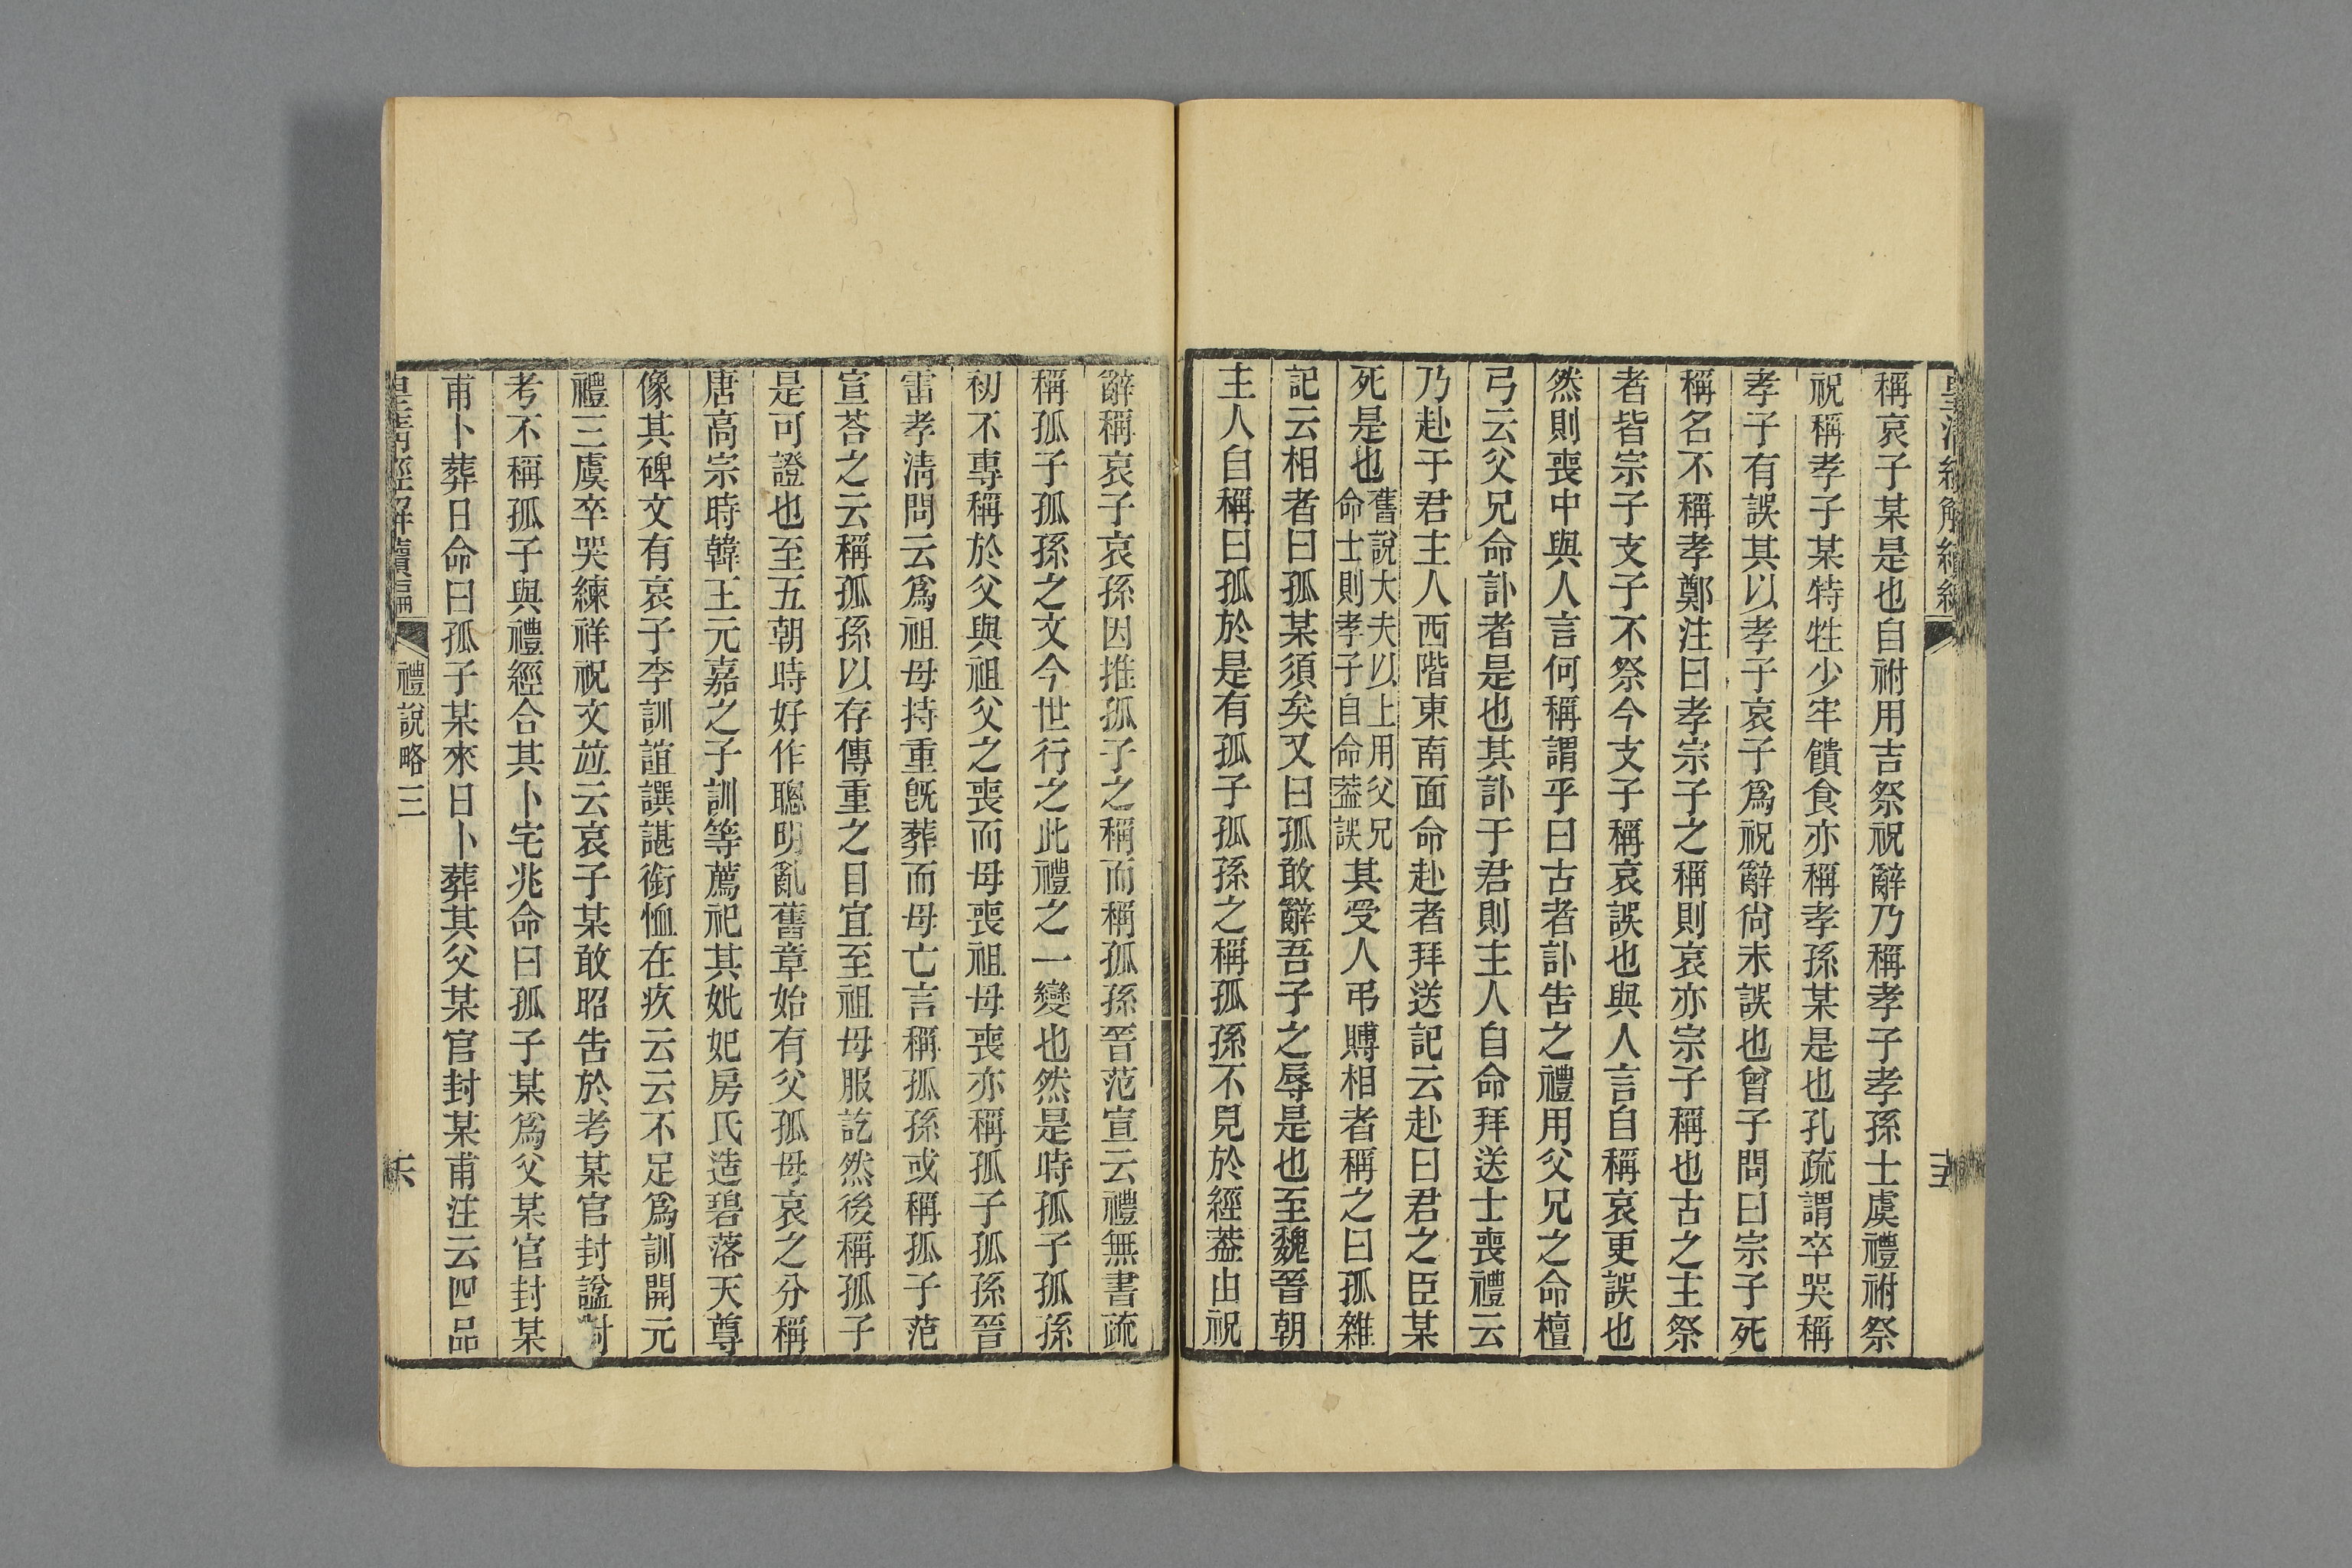 皇清經解續編
十五
稱哀子某是也自祔用吉祭祝辭乃稱孝子孝孫士虞禮祔祭
祝稱孝子某特牲少牢饋食亦稱孝孫某是也孔疏謂卒哭稱
孝子有誤其以孝子哀子爲祝辭尙未誤也曾子問曰宗子死
稱名不稱孝鄭注曰孝宗子之稱則哀亦宗子稱也古之主祭
者皆宗子支子不祭今支子稱哀誤也與人言自稱哀更誤也
然則喪中與人言何稱謂乎曰古者訃告之禮用父兄之命檀
弓云父兄命訃者是也其訃于君則主人自命拜送士喪禮云
乃赴于君主人西階東南面命赴者拜送記云赴曰君之臣某
死是也舊說大夫以上用父兄命士則孝子自命葢誤其受人弔賻相者稱之曰孤雜
記云相者曰孤某須矣又曰孤敢辭吾子之辱是也至魏晉朝
主人自稱曰孤於是有孤子孤孫之稱孤孫不見於經葢由祝
辭稱哀子哀孫因推孤子之稱而稱孤孫晉范宣云禮無書疏
稱孤子孤孫之文今世行之此禮之一變也然是時孤子孤孫
初不專稱於父與祖父之喪而母喪祖母喪亦稱孤子孤孫晉
雷孝淸問云爲祖母持重旣葬而母亡言稱孤孫或稱孤子范
宣荅之云稱孤孫以存傳重之目宜至祖母服訖然後稱孤子
是可證也至五朝時好作聰明亂舊章始有父孤母哀之分稱
唐高宗時韓王元嘉之子訓等薦祀其妣妃房氏造碧落天尊
像其碑文有哀子李訓誼譔諶銜恤在疚云云不足爲訓開元
禮三虞卒哭練祥祝文竝云哀子某敢昭告於考某官封諡
考不稱孤子與禮經合其卜宅兆命曰孤子某爲父某官封某
甫卜葬日命曰孤子某來日卜葬其父某官封某甫注云四品
皇淸經解續編
禮說略三
六